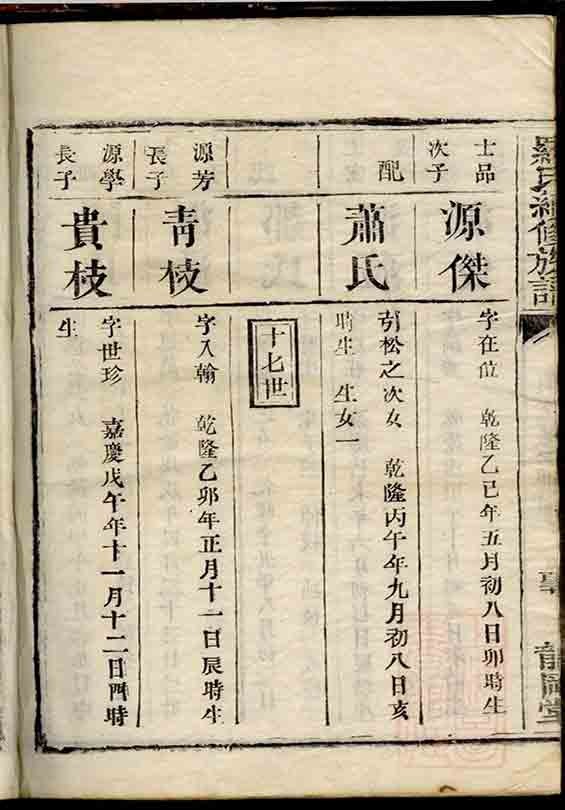 羅氏續修族譜
士品
次子
源傑
字在位 乾隆乙巳年五月初八日卯時生
配
蕭氏
引松之次女 乾隆丙午年九月初八日亥
時生 生女一
十七世
源芳
長子
青枝
字入翰 乾隆乙卯年正月十一日辰時生
源學
長子
貴枝
字世珍 嘉慶戊午年十一月十二日酉時
生